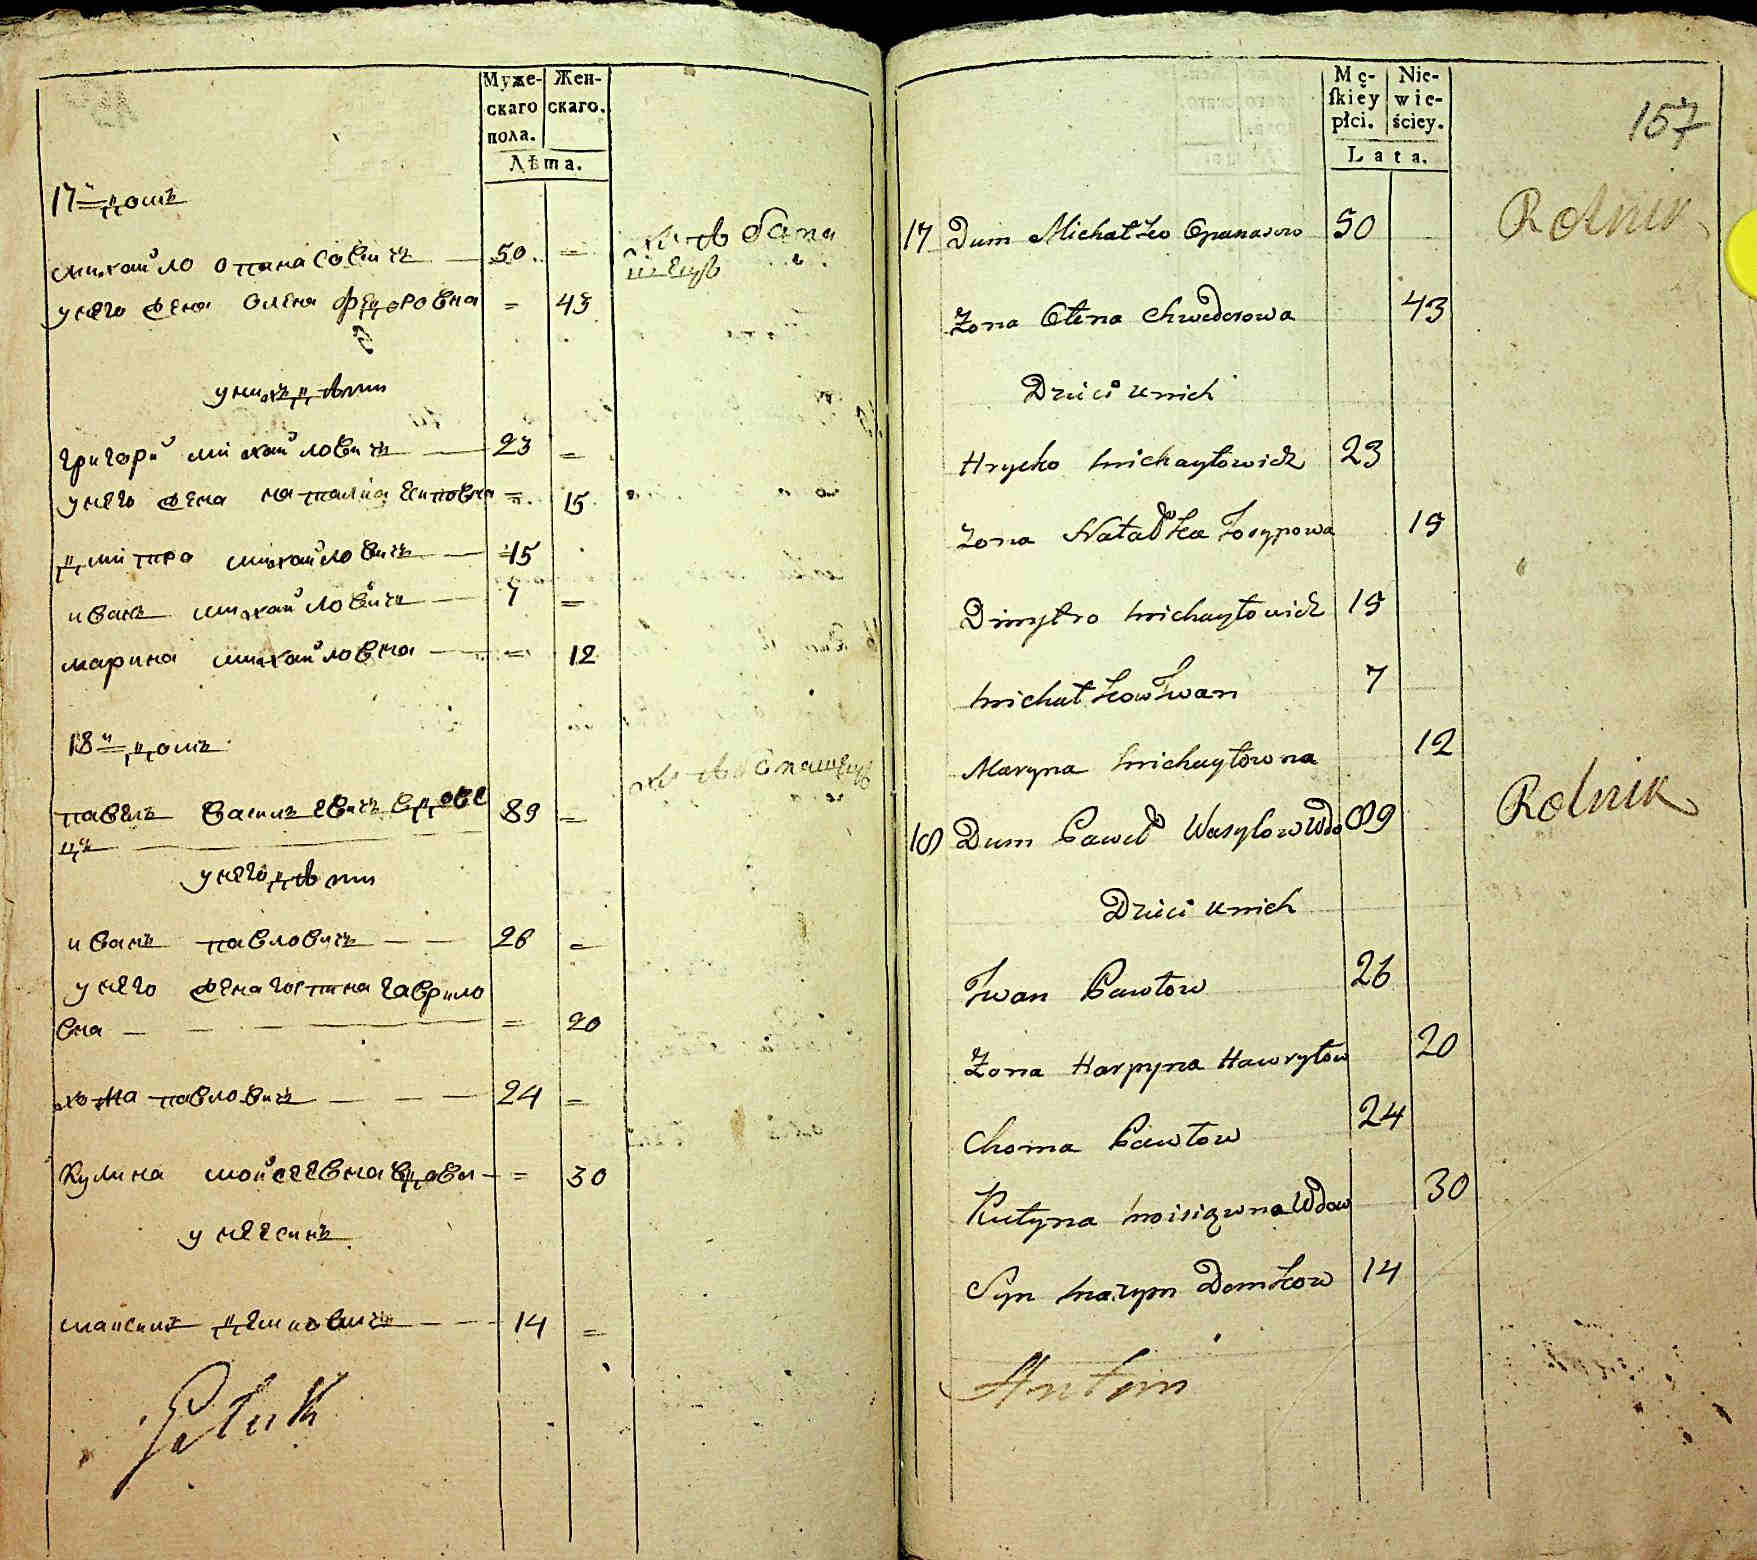 Муже-
скаго
пола.
Жен-
скаго.
Лѣта.
17й домъ
михайло опанасовичъ 50 =
хлѣбопа
шецъ
унего жена олена федоровна = 43
унихъ дѣти
григорй михайловичъ 23 =
унего жена наталия есиповна = 15
дмитро михайловичъ 15
иванъ михайловичъ 7 =
марина михайловна = 12
18й домъ
павелъ василевичъ вдове 89 =
цъ
унего дѣти
иванъ павловичъ 26 =
унего жена гаврило
вна = 20
хома павловичъ 24 =
кулина мойсеевна вдова = 30
унее синъ
максимъ демковичъ 14 =
Mę-
ſkiey
płci.
Nie-
wie-
ściey.
Lata.
157
17 Dum Michałko Opanasow 50 Rolnik
Zona Ołena Chwedorowa 43
Dzieci unich
Hrycko Michayłowicz 23
Zona Natałka Josypowa 15
Dmytro Michayłowicz 15
Michałkow Iwan 7
Maryna Michayłowna 12
18 Dum Paweł Wasylow Wdo 89 Rolnik
Dzieci unich
Iwan Pawłow 26
Zona Harpyna Hawryłow 20
Choma Pawłow 24
Kułyna Moisiewna Wdow 30
Syn Maxym Demkow 14
Antoni